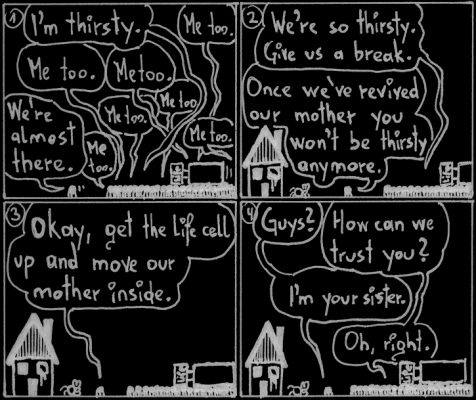 1
I'm thirsty.
Me too.
Me too.
Me too.
Me too.
Me too.
Me too.
Me
too.
We're
almost
there.
Life
2
We're so thirsty.
Give us a break.
Once we've revived
our mother you
won't be thirsty
anymore.
Life
3
Okay, get the Life cell
up and move our
mother inside.
Life
4
Guys?
How can we
trust you?
I'm your sister.
Oh, right.
Life